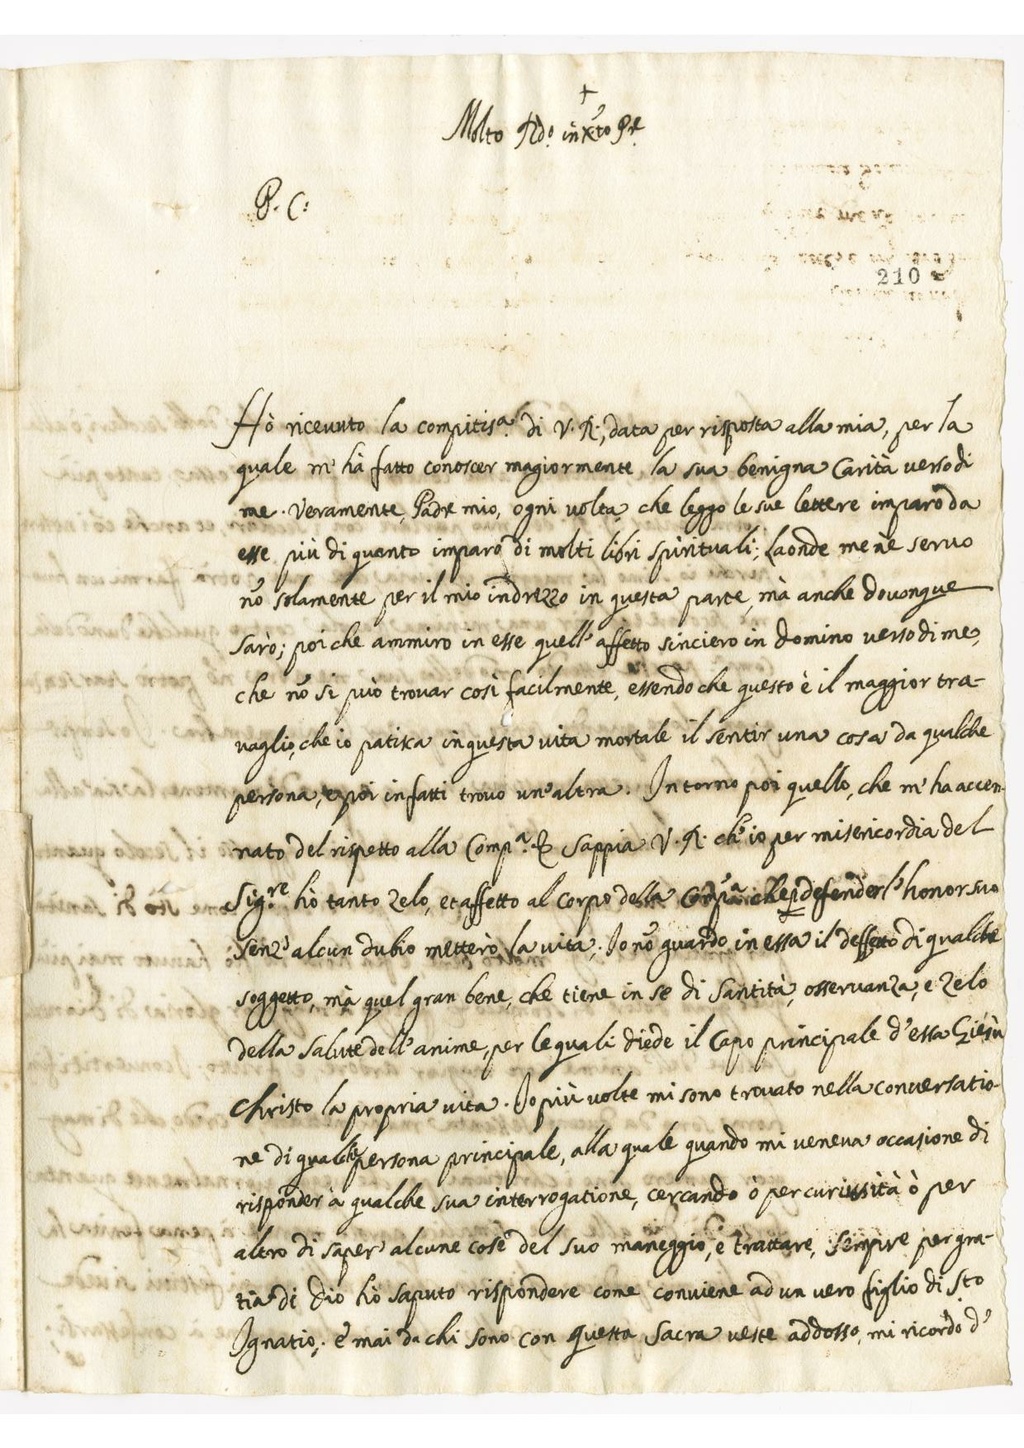 +
Molto Rdo in Xto Pre
P. C:
210
Hò riceuuto la compitisa: di V. R. data per risposta alla mia, per la
quale m'hà fatto conoscer magiormente la sua benigna Carità verso di
me. Veramente, Padre mio, ogni uolta, che leggo le sue lettere imparo da
esse più di quanto imparo di molti libri spirituali; Laonde me ne seruo
nō solamente per il mio indrezzo in questa parte, mà anche douonque
sarò; poi che ammiro in esse quell'affetto sinciero in Domino verso di me,
che nō si può trouar così facilmente, essendo che questo è il maggior tra-
uaglio, che io patisca in questa uita mortale il sentir una cosa da qualche
persona, e poi in fatti trouo un'altra. Intorno poi quello, che m'ha accen-
nato del rispetto alla Compa. Sappia V. R. ch'io per misericordia del
Sigre hò tanto Zelo, et affetto al corpo della Compa che p defender l'honor suo
senz'alcun dubio metterò la uita. Io nō guardo in essa il deffetto di qualche
soggetto, mà quel gran bene, che tiene in se di Santità, osseruanza, e Zelo
della Salute dell'anime, per le quali diede il Capo principale d'essa Giesù
Christo la propria uita. Io più uolte mi sono trouato nella conuersatio-
ne di qualche persona principale, alla quale quando mi ueneua occasione di
risponder à qualche sua interrogatione, cercando ò per curiussità ò per
altro di saper alcune cose del suo maneggio, e trattare, sempre per gra-
tia di Dio hò saputo rispondere come conuiene ad un uero figlio di Sto
Ignatio, e mai da chi sono con questa Sacra ueste addosso, mi ricordo d'